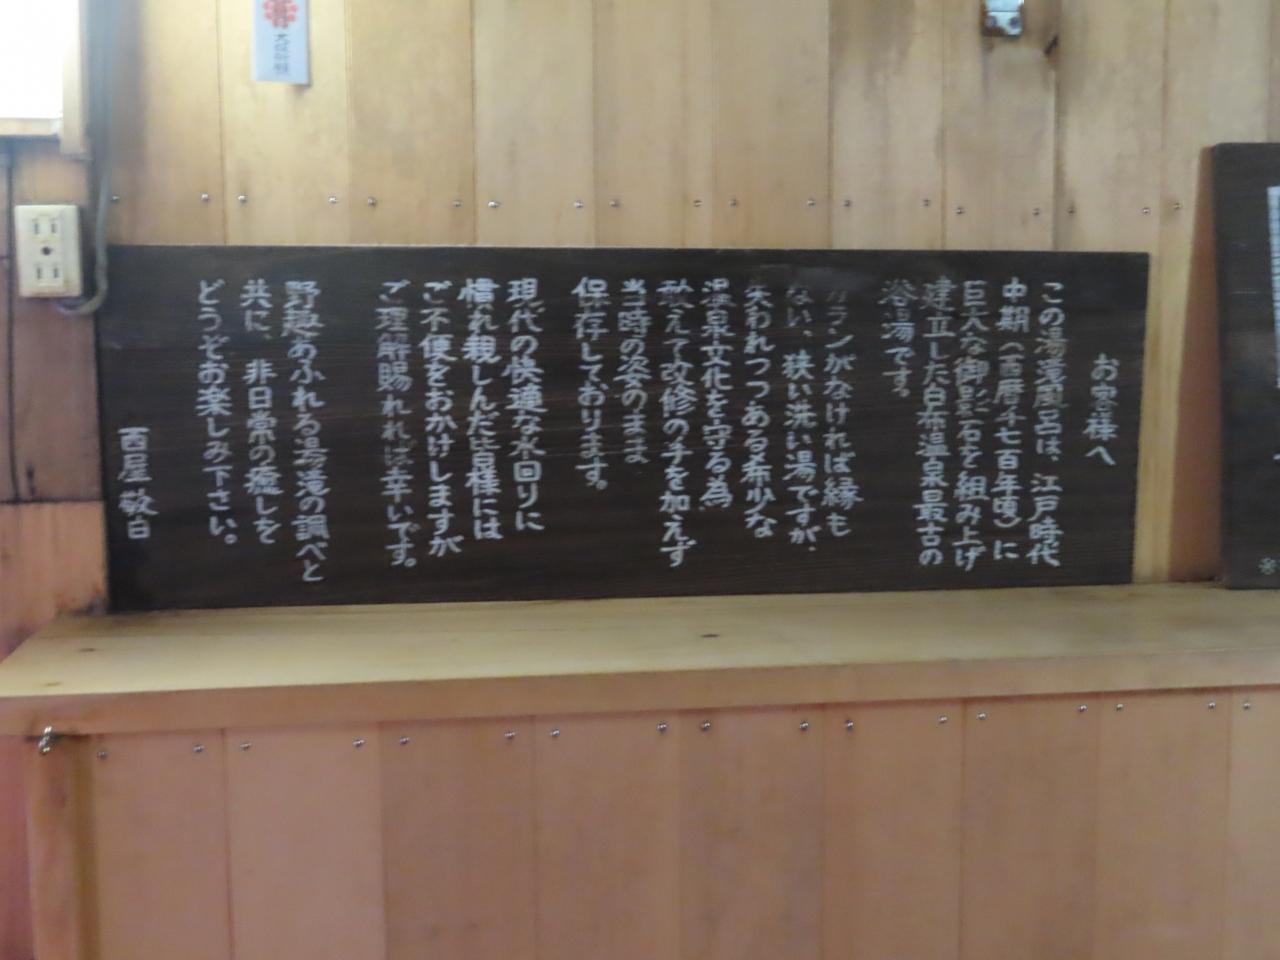 お客様へ
この湯滝風呂は、江戸時代
中期（西暦千七百年頃）に
巨大な御影石を組み上げ
建立した白布温泉最古の
浴場です。
カランがなければ縁も
ない、狭い洗い場ですが、
失われつつある希少な
温泉文化を守る為
敢えて改修の手を加えず
当時の姿のまま
保存しております。
現代の快適な水回りに
慣れ親しんだ皆様には
ご不便をおかけしますが
ご理解賜れれば幸いです。
野趣あふれる湯滝の調べと
共に、非日常の癒しを
どうぞお楽しみ下さい。
西屋 敬白